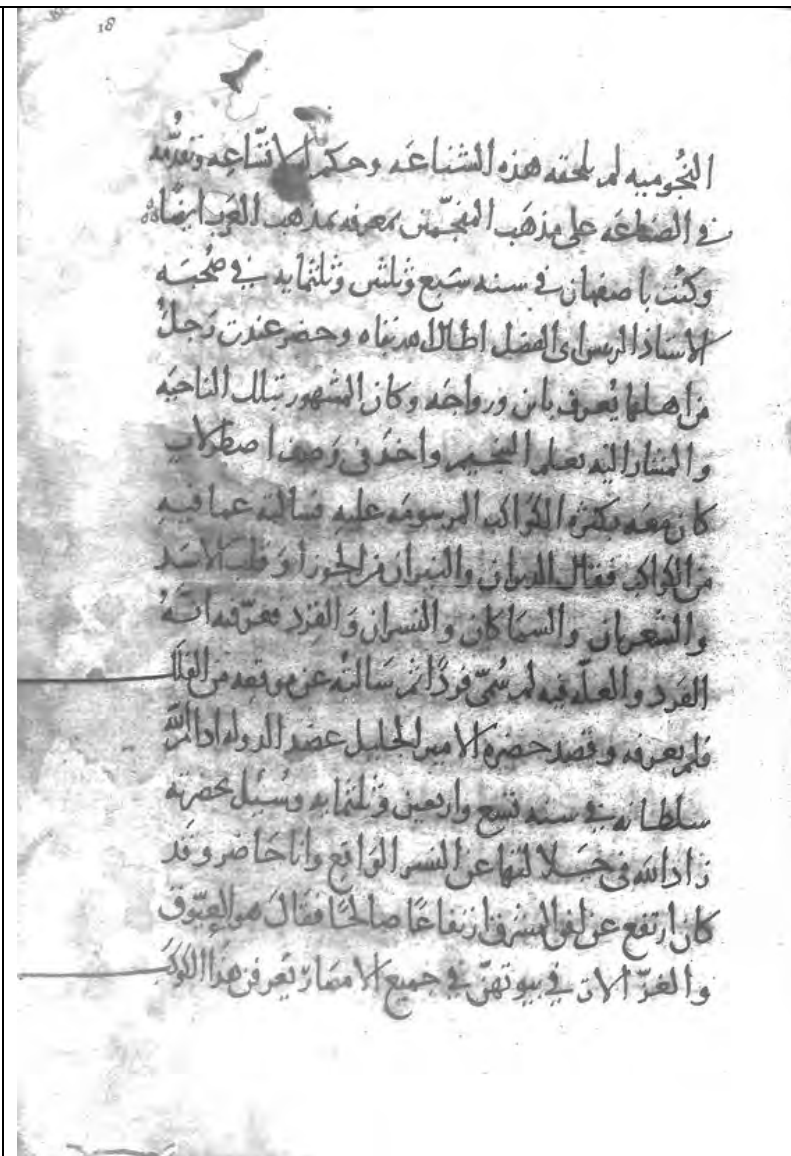 18
النجوميه لم يلحقه هذه الشناعه وحكم الاتساعه وتقدمه
في الصناعه على مذهب المنجمين بمعرفته بمذهب العرب ايضاه
وكنت باصفهان في سنه سبع وثلثين وثلثمايه في صحبه
الاستاذ الرئيس ابي الفضل اطال الله بقاه وحضر عنده رجل
من اهلها يعرف بابن ورواحه وكان المشهور بتلك الناحيه
والمشار اليه بعلم التنجيم واخذ في وصف اصطرلاب
كان معه بكثره الكواكب المرسومه عليه فسالته عما فيه
من الكواكب فقال الدبران والنيران من الجوزا وقلب الاسد
والشعريان والسماكان والنسران والفرد فعرفته انه
الفرد والعله فيه لم سمي فردا ثم سالته عن موقعه من الفلك
فلم يعرفه وقصد حضره الامير الجليل عضد الدوله ادام الله
سلطانه في سنه تسع واربعين وثلثمايه وسئل بحضرته
زاد الله في جلالتها عن النسر الواقع وانا حاضر وقد
كان ارتفع عن افق المشرق ارتفاعا صالحا فقال هو العيوق
والغزالات في بيوتهن في جميع الامصار يعرفن هذا الكوكب